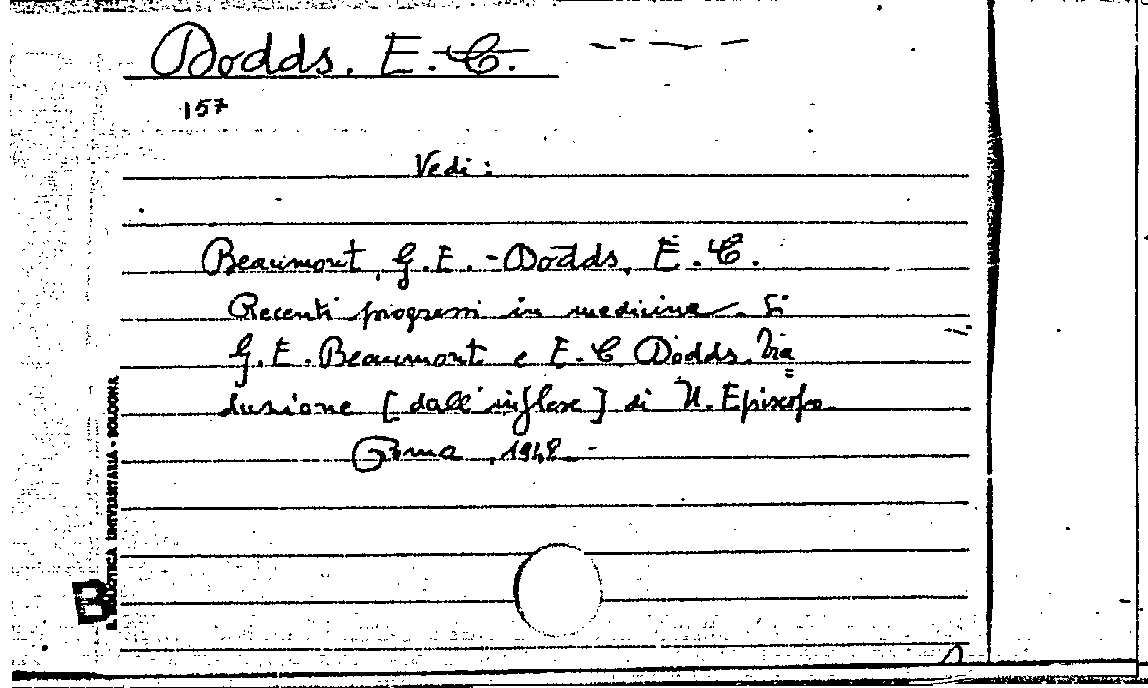 Dodds, E. C.
157
Vedi:
Beaumont, G. E. - Dodds, E. C.
Recenti progressi in medicina. Di
G. E. Beaumont e E. C Dodds. Tra=
duzione [dall'inglese] di U. Episcopo.
Roma, 1948.-
B. BIBLIOTECA UNIVERSITARIA - BOLOGNA